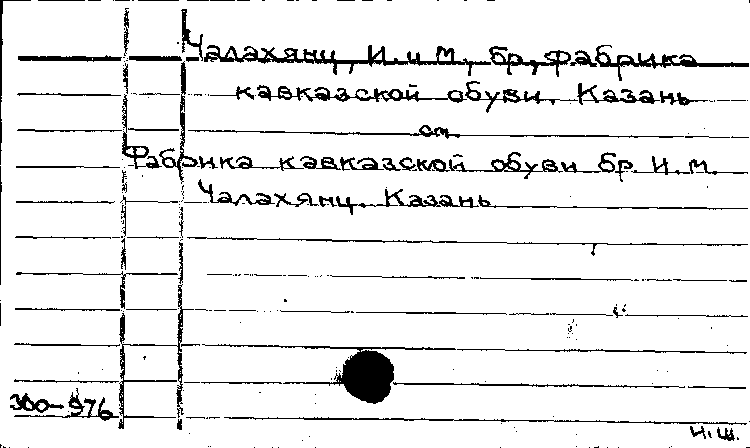 Чалахянц, И. и М., бр., фабрика
кавказской обуви. Казань
см.
Фабрика кавказской обуви бр. И. М.
Чалахянц. Казань
300-976
И.Ш.